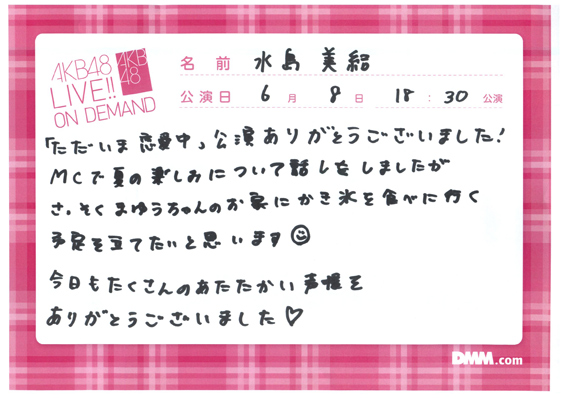 AKB48
LIVE!!
ON DEMAND
AKB
48
名前 水島 美結
公演日 6月 8日 18:30 公演
「ただいま 恋愛中」公演ありがとうございました!
MCで夏の楽しみについて話しをしましたが
さっそくまゆうちゃんのお家にかき氷を食べに行く
予定を立てたいと思います☺
今日もたくさんのあたたかい声援を
ありがとうございました♡
DMM.com